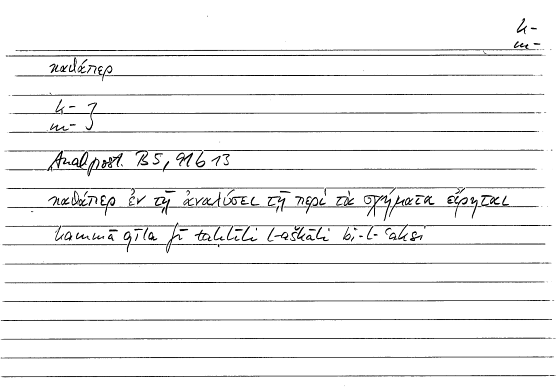 k-
m-
καθάπερ
k-
m-
Anal. post. B 5, 91b13
καθάπερ ἐν τῇ ἀναλύσει τῇ περὶ τὰ σχήματα εἴρηται
kammā qīla fī taḥlīli l-aškāli bi-l-ʿaksi